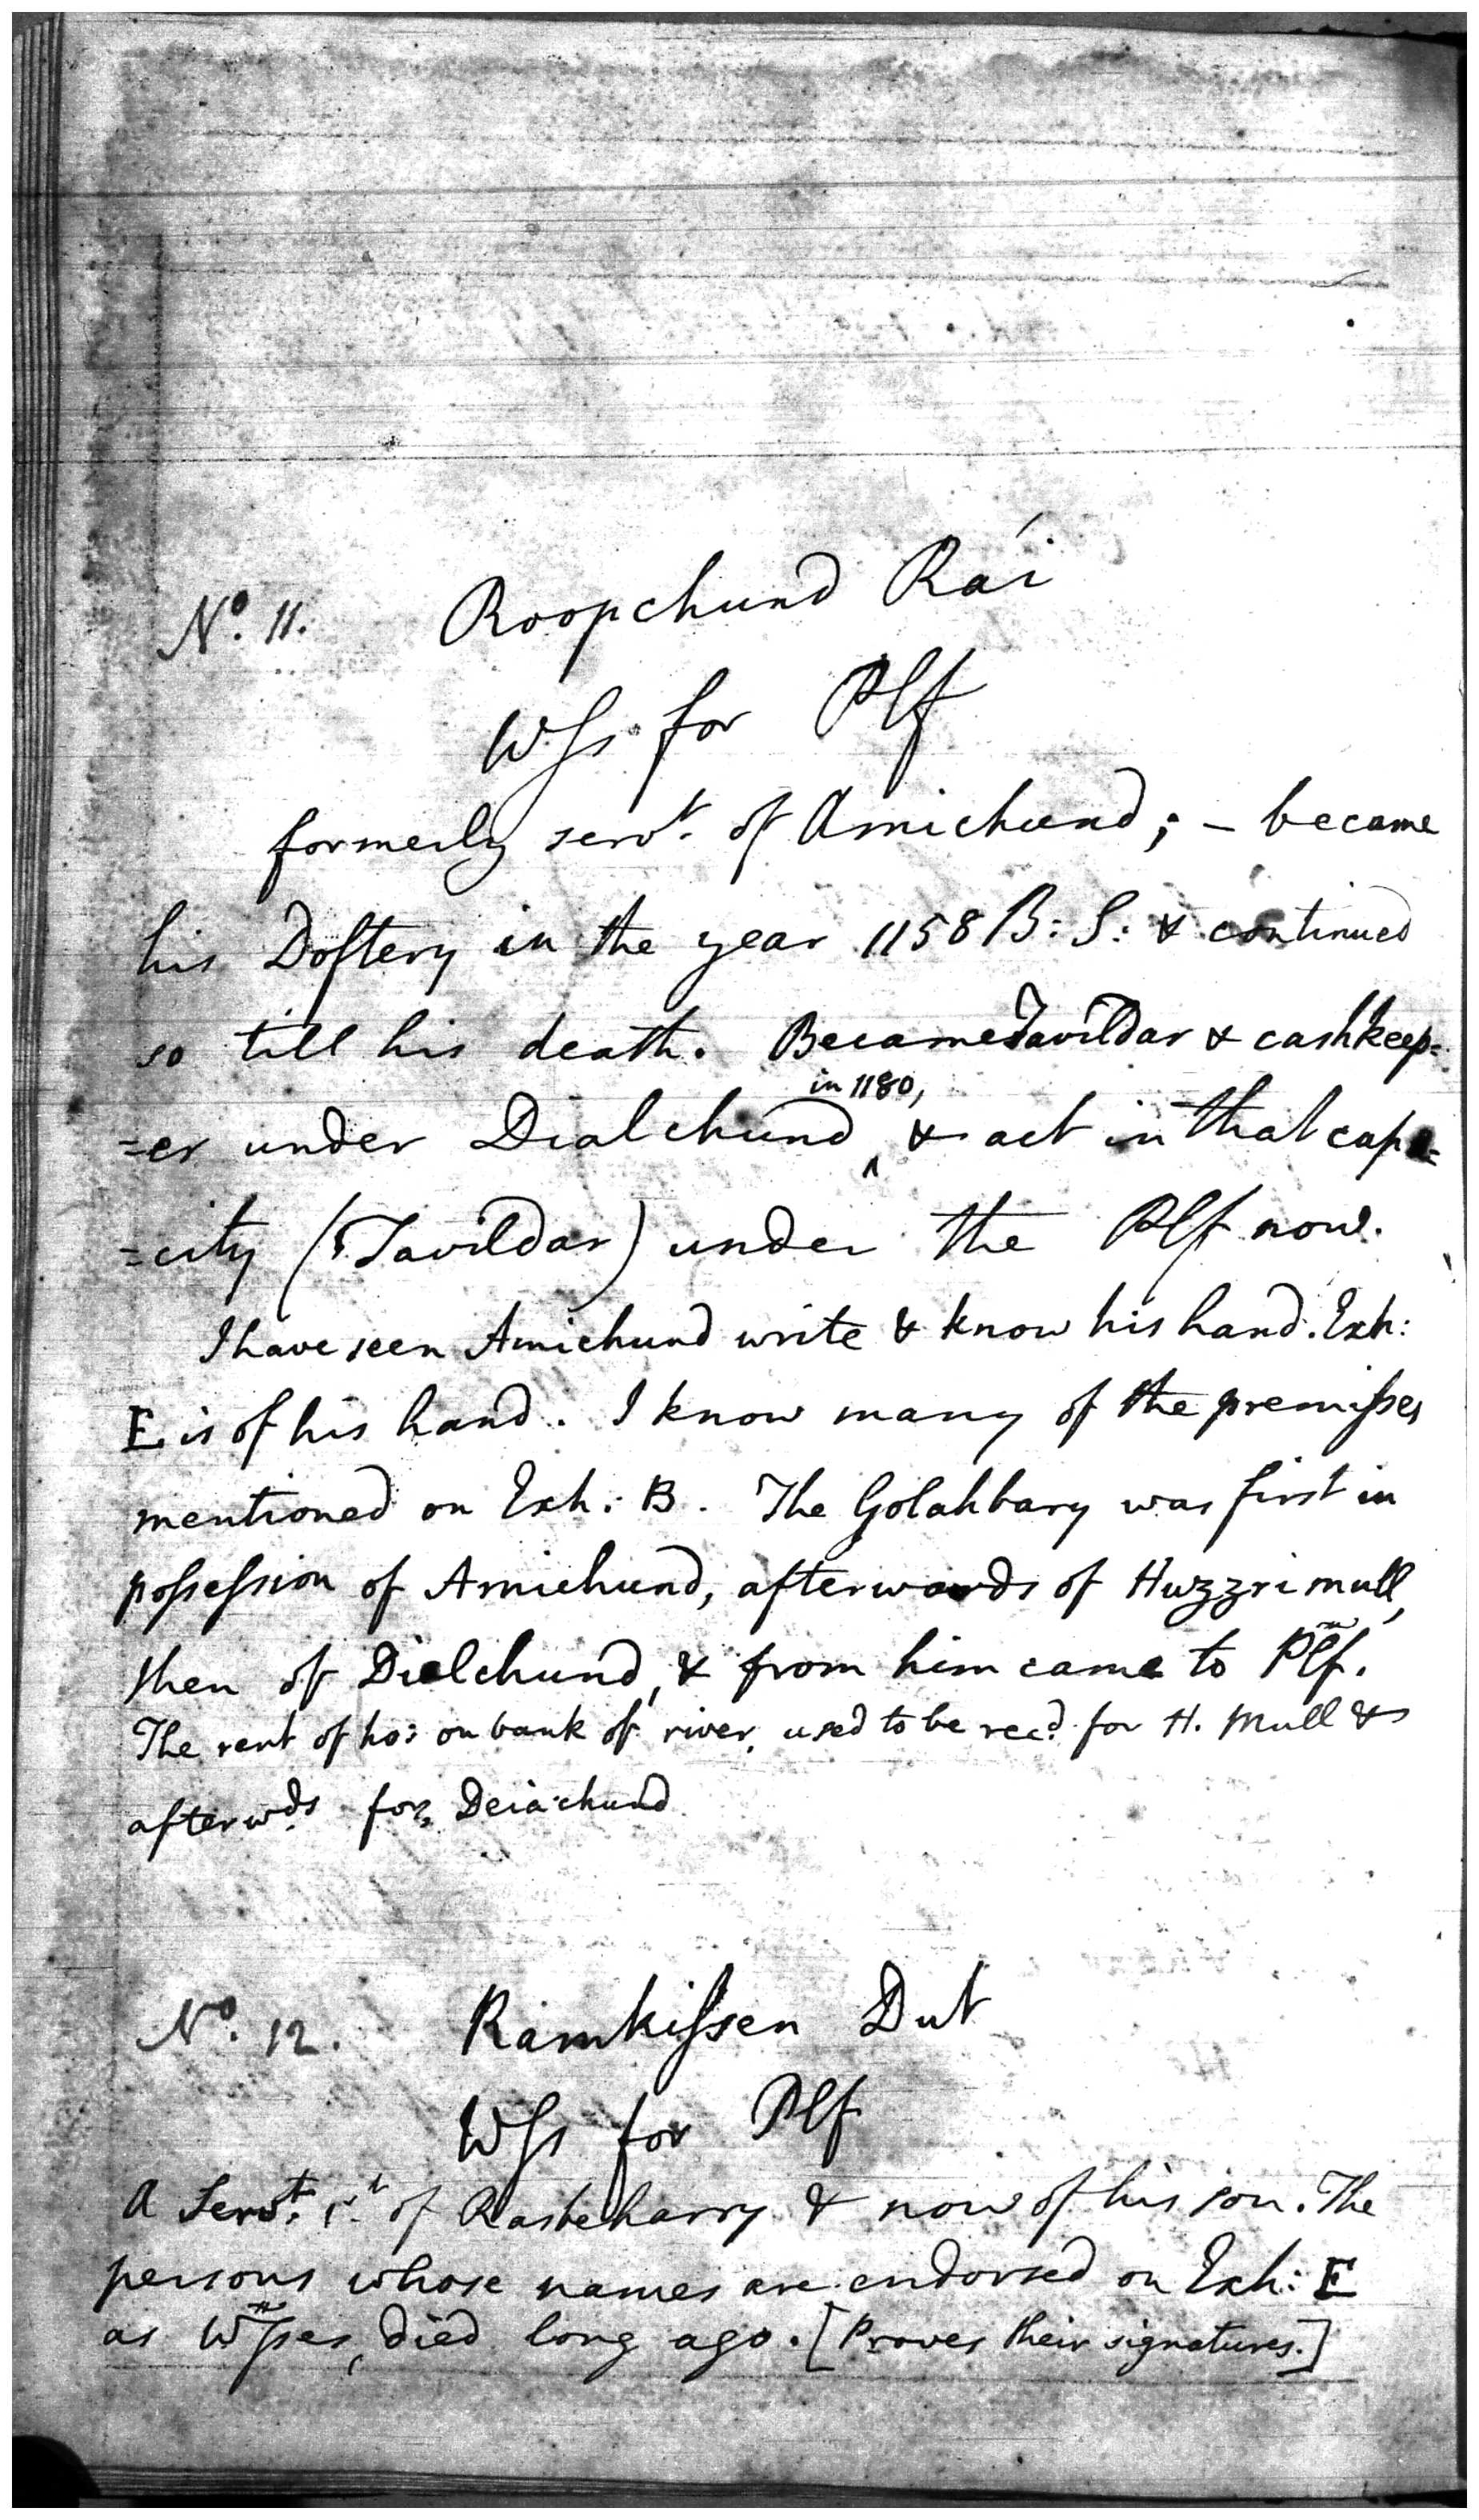 No. 11. Roopchund Rai
Wſs for Plf
formerly servt. of Amichund; – became
his Doftery in the year 1158 B: S: & continued
so till his death. Became Tavildar & cashkeep=
=er under Dialchund in 1180, & act in that capa=
=city (Tavildar) under the Plf now.
I have seen Amichund write & know his hand. Exh:
E is of his hand. I know many of the premiſses
mentioned on Exh: B. The Golahbary was first in
poſseſsion of Amichund, afterwards of Huzzrimull,
then of Dialchund, & from him came to Plf.
The rent of ho: on bank of river, used to be recd. for H. Mull &
afterwds. for Deiachund
No. 12. Ramkiſsen Dut
Wſs for Plf
A Servt. 1st. of Rasbeharry & now of his son. The
persons whose names are endorsed on Exh: E
as Wſses, died long ago. [Proves their signatures.]